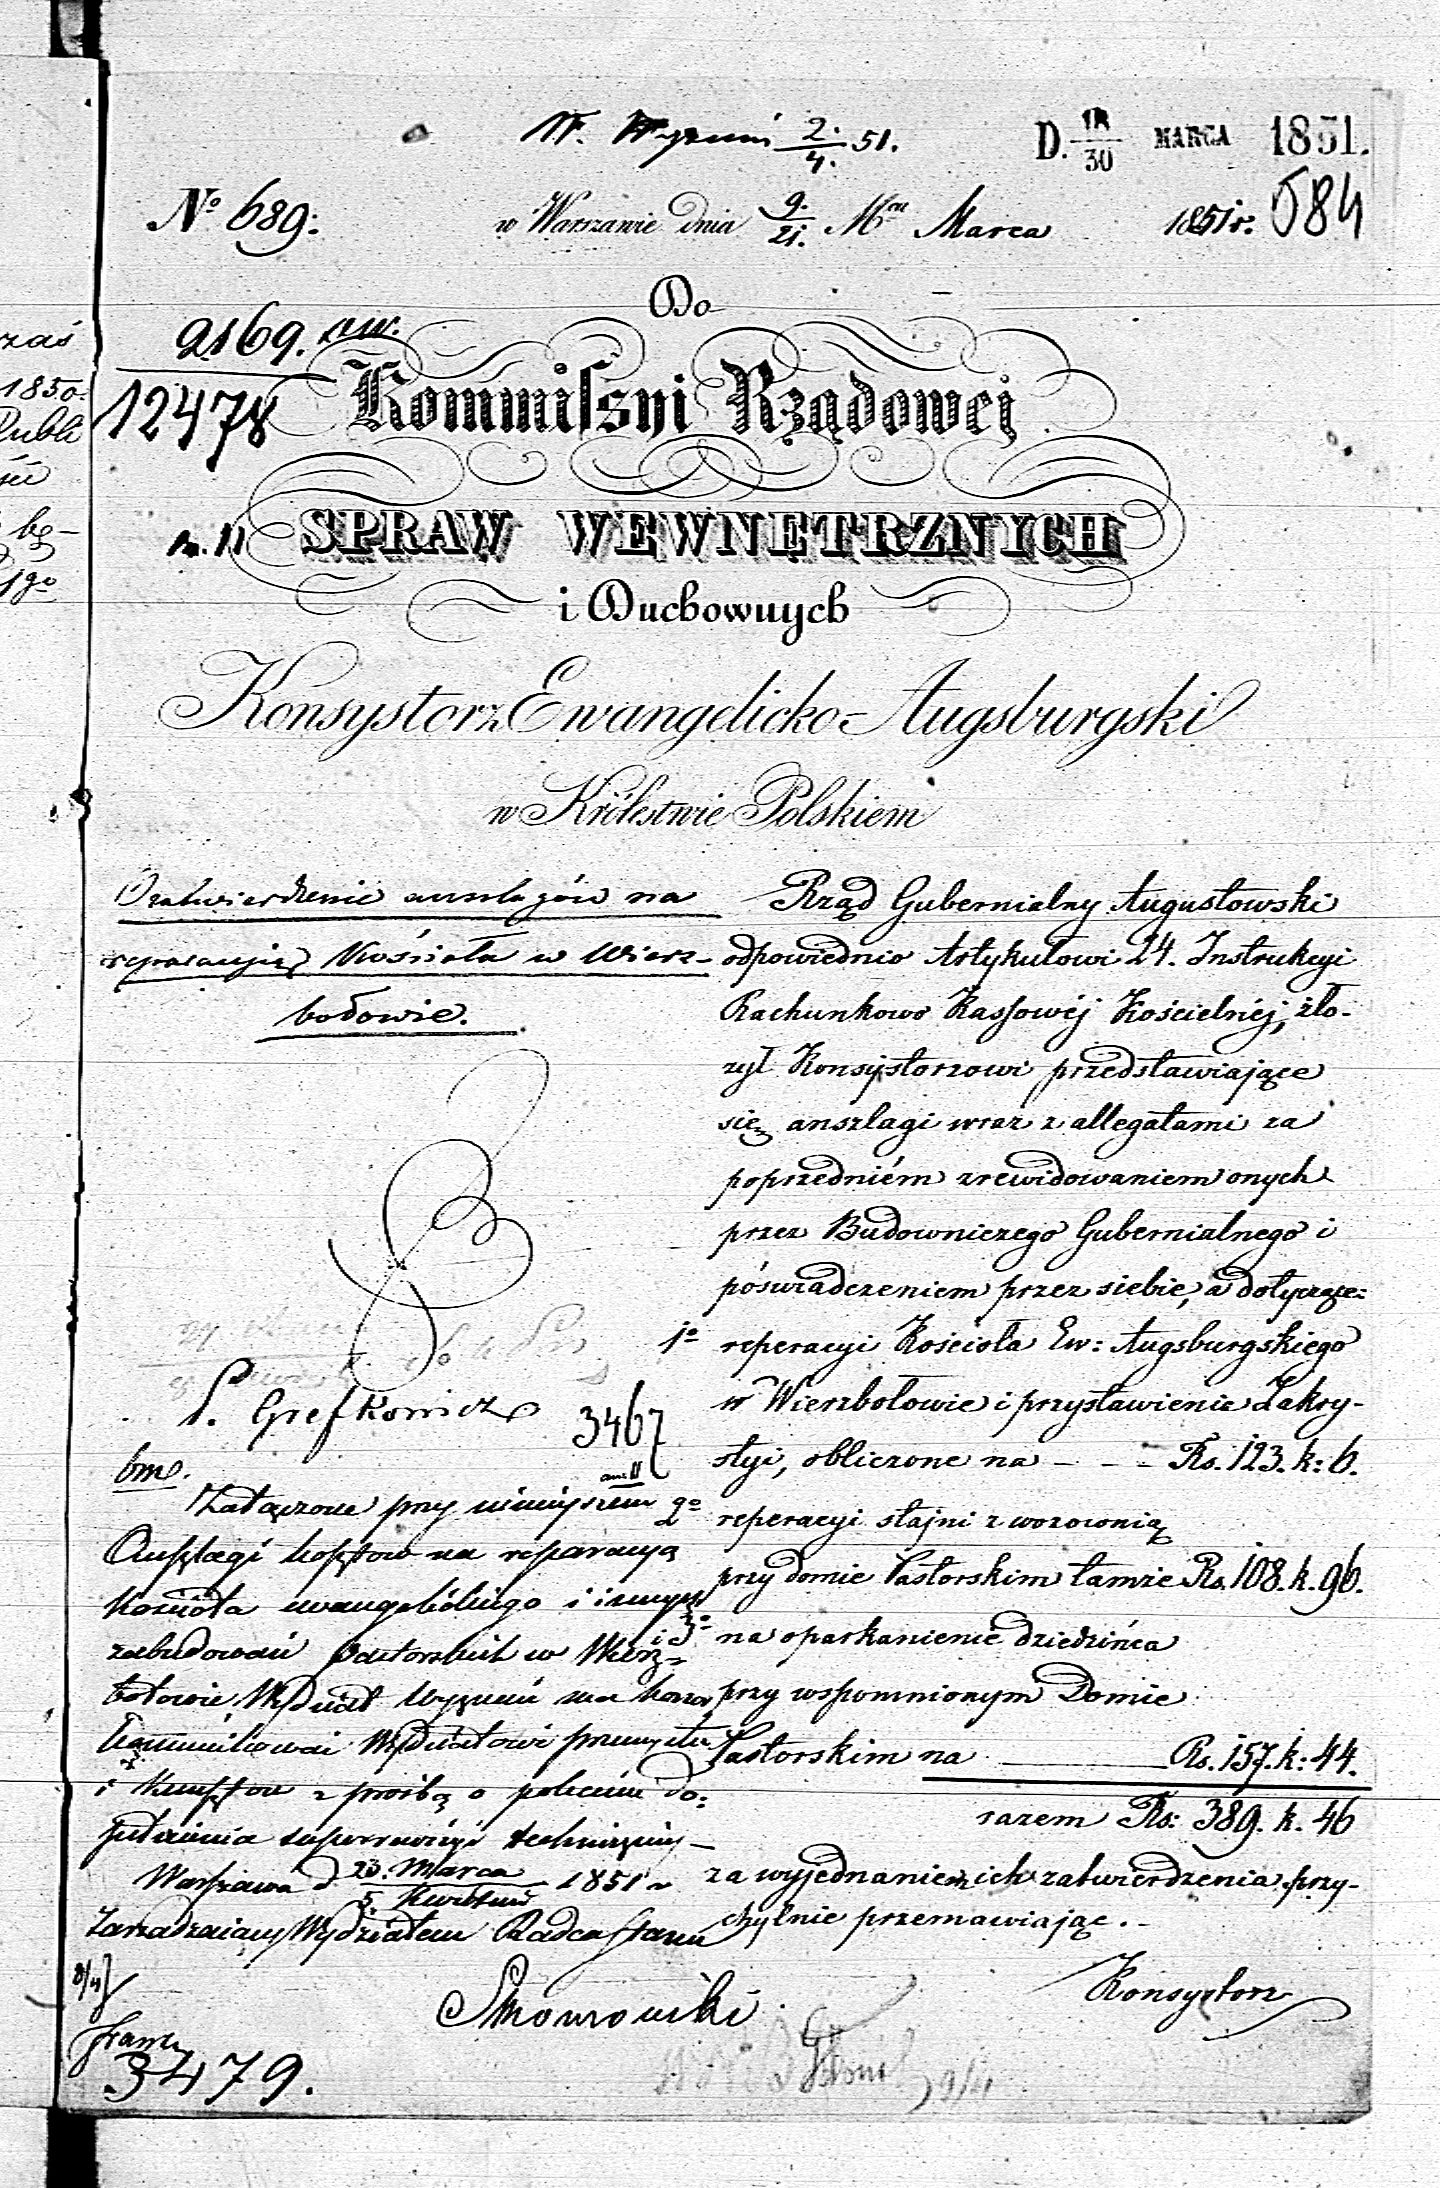 W. Wyznań 2/4. 51.
D. 18/30 MARCA 1851.
584
№ 689:
w Warszawie dnia 9./21. Mca Marca 1851 r.
Do
2169.
12478
Kommissyi Rządowej
SPRAW WEWNĘTRZNYCH
i Duchownych
Konsystorz Ewangelicko-Augsburgski
w Królestwie Polskiem
O zatwierdzenie anszlagów na
reparacyją Kościoła w Wierz-
bołowie.
Rząd Gubernialny Augustowski
odpowiednio Artykułowi 24. Instrukcyi
Rachunkowo Kassowéj Kościelnéj, zło-
żył Konsystorzowi przedstawiające
się anszlagi wraz z allegatami za
poprzedniém zrewidowaniem onych
przez Budowniczego Gubernialnego i
póswiadczeniem przez siebie, a dotyczące:
1o reperacyi Kościoła Ew: Augsburgskiego
w Wierzbołowie i przystawienie Zakry-
styi, obliczone na - - - Rs. 123. k: 6.
2o reperacyi stajni z wozownią
przy domie Pastorskim tamże Rs. 108. k. 96.
3o na oparkanienie dziedzińca
przy wspomnionym Domie
Pastorskim na Rs. 157. k: 44.
razem Rs: 389. k. 46
za wyjednaniem ich zatwierdzenia przy-
chylnie przemawiając. -
Konsystorz
P. Grefkowicz
3467
bmo.
Załączone przy niniejszem
Anszlagi kosztow na reparacyą
Kościoła ewangelickiego i innych
zabudowań pastorskich w Wierz-
bołowie, Wydział Wyznań ma honor
kommunikować Wydziałowi przemysłu
i Kunsztow z prośbą o polecenie do-
pełnienia superrewizyi techniczney -
Warszawa d 23. Marca/5. Kwietnia 1851 r
Zarządzaiący Wydziałem Radca Stanu
8/4
3479.
9/4
zaś
1850.